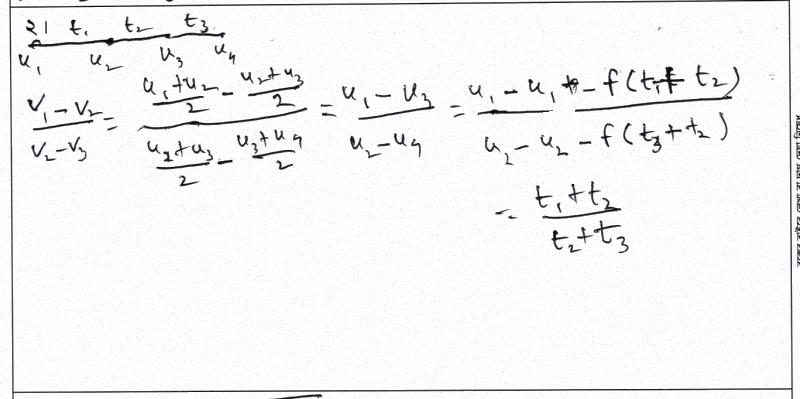 ২। t₁ t₂ t₃
u₁ u₂ u₃ u₄
(v₁ - v₂)/(v₂ - v₃) = ((u₁+u₂)/2 - (u₂+u₃)/2)/((u₂+u₃)/2 - (u₃+u₄)/2) = (u₁ - u₃)/(u₂ - u₄) = (u₁ - u₁ - f(t₁+t₂))/(u₂ - u₂ - f(t₃+t₂))
= (t₁+t₂)/(t₂+t₃)